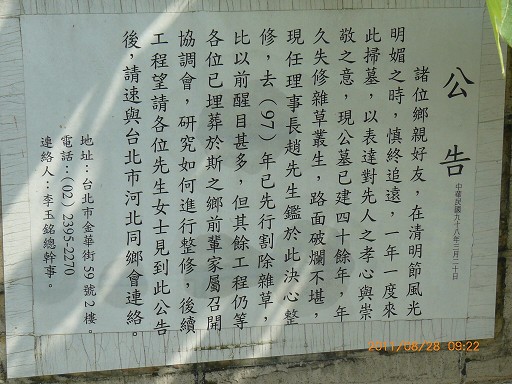 公告
中華民國九十八年三月二十日
諸位鄉親好友，在清明節風光
明媚之時，慎終追遠，一年一度來
此掃墓，以表達對先人之孝心與崇
敬之意，現公墓已建四十餘年，年
久失修雜草叢生，路面破爛不堪，
現任理事長趙先生鑑於此決心整
修，去（97）年已先行割除雜草，
比以前醒目甚多，但其餘工程仍等
各位已埋葬於斯之鄉前輩家屬召開
協調會，研究如何進行整修，後續
工程望請各位先生女士見到此公告
後，請速與台北市河北同鄉會連絡。
地址：台北市金華街59號2樓。
電話：(02) 2395-2270
連絡人：李玉銘總幹事。
2011/08/28 09:22